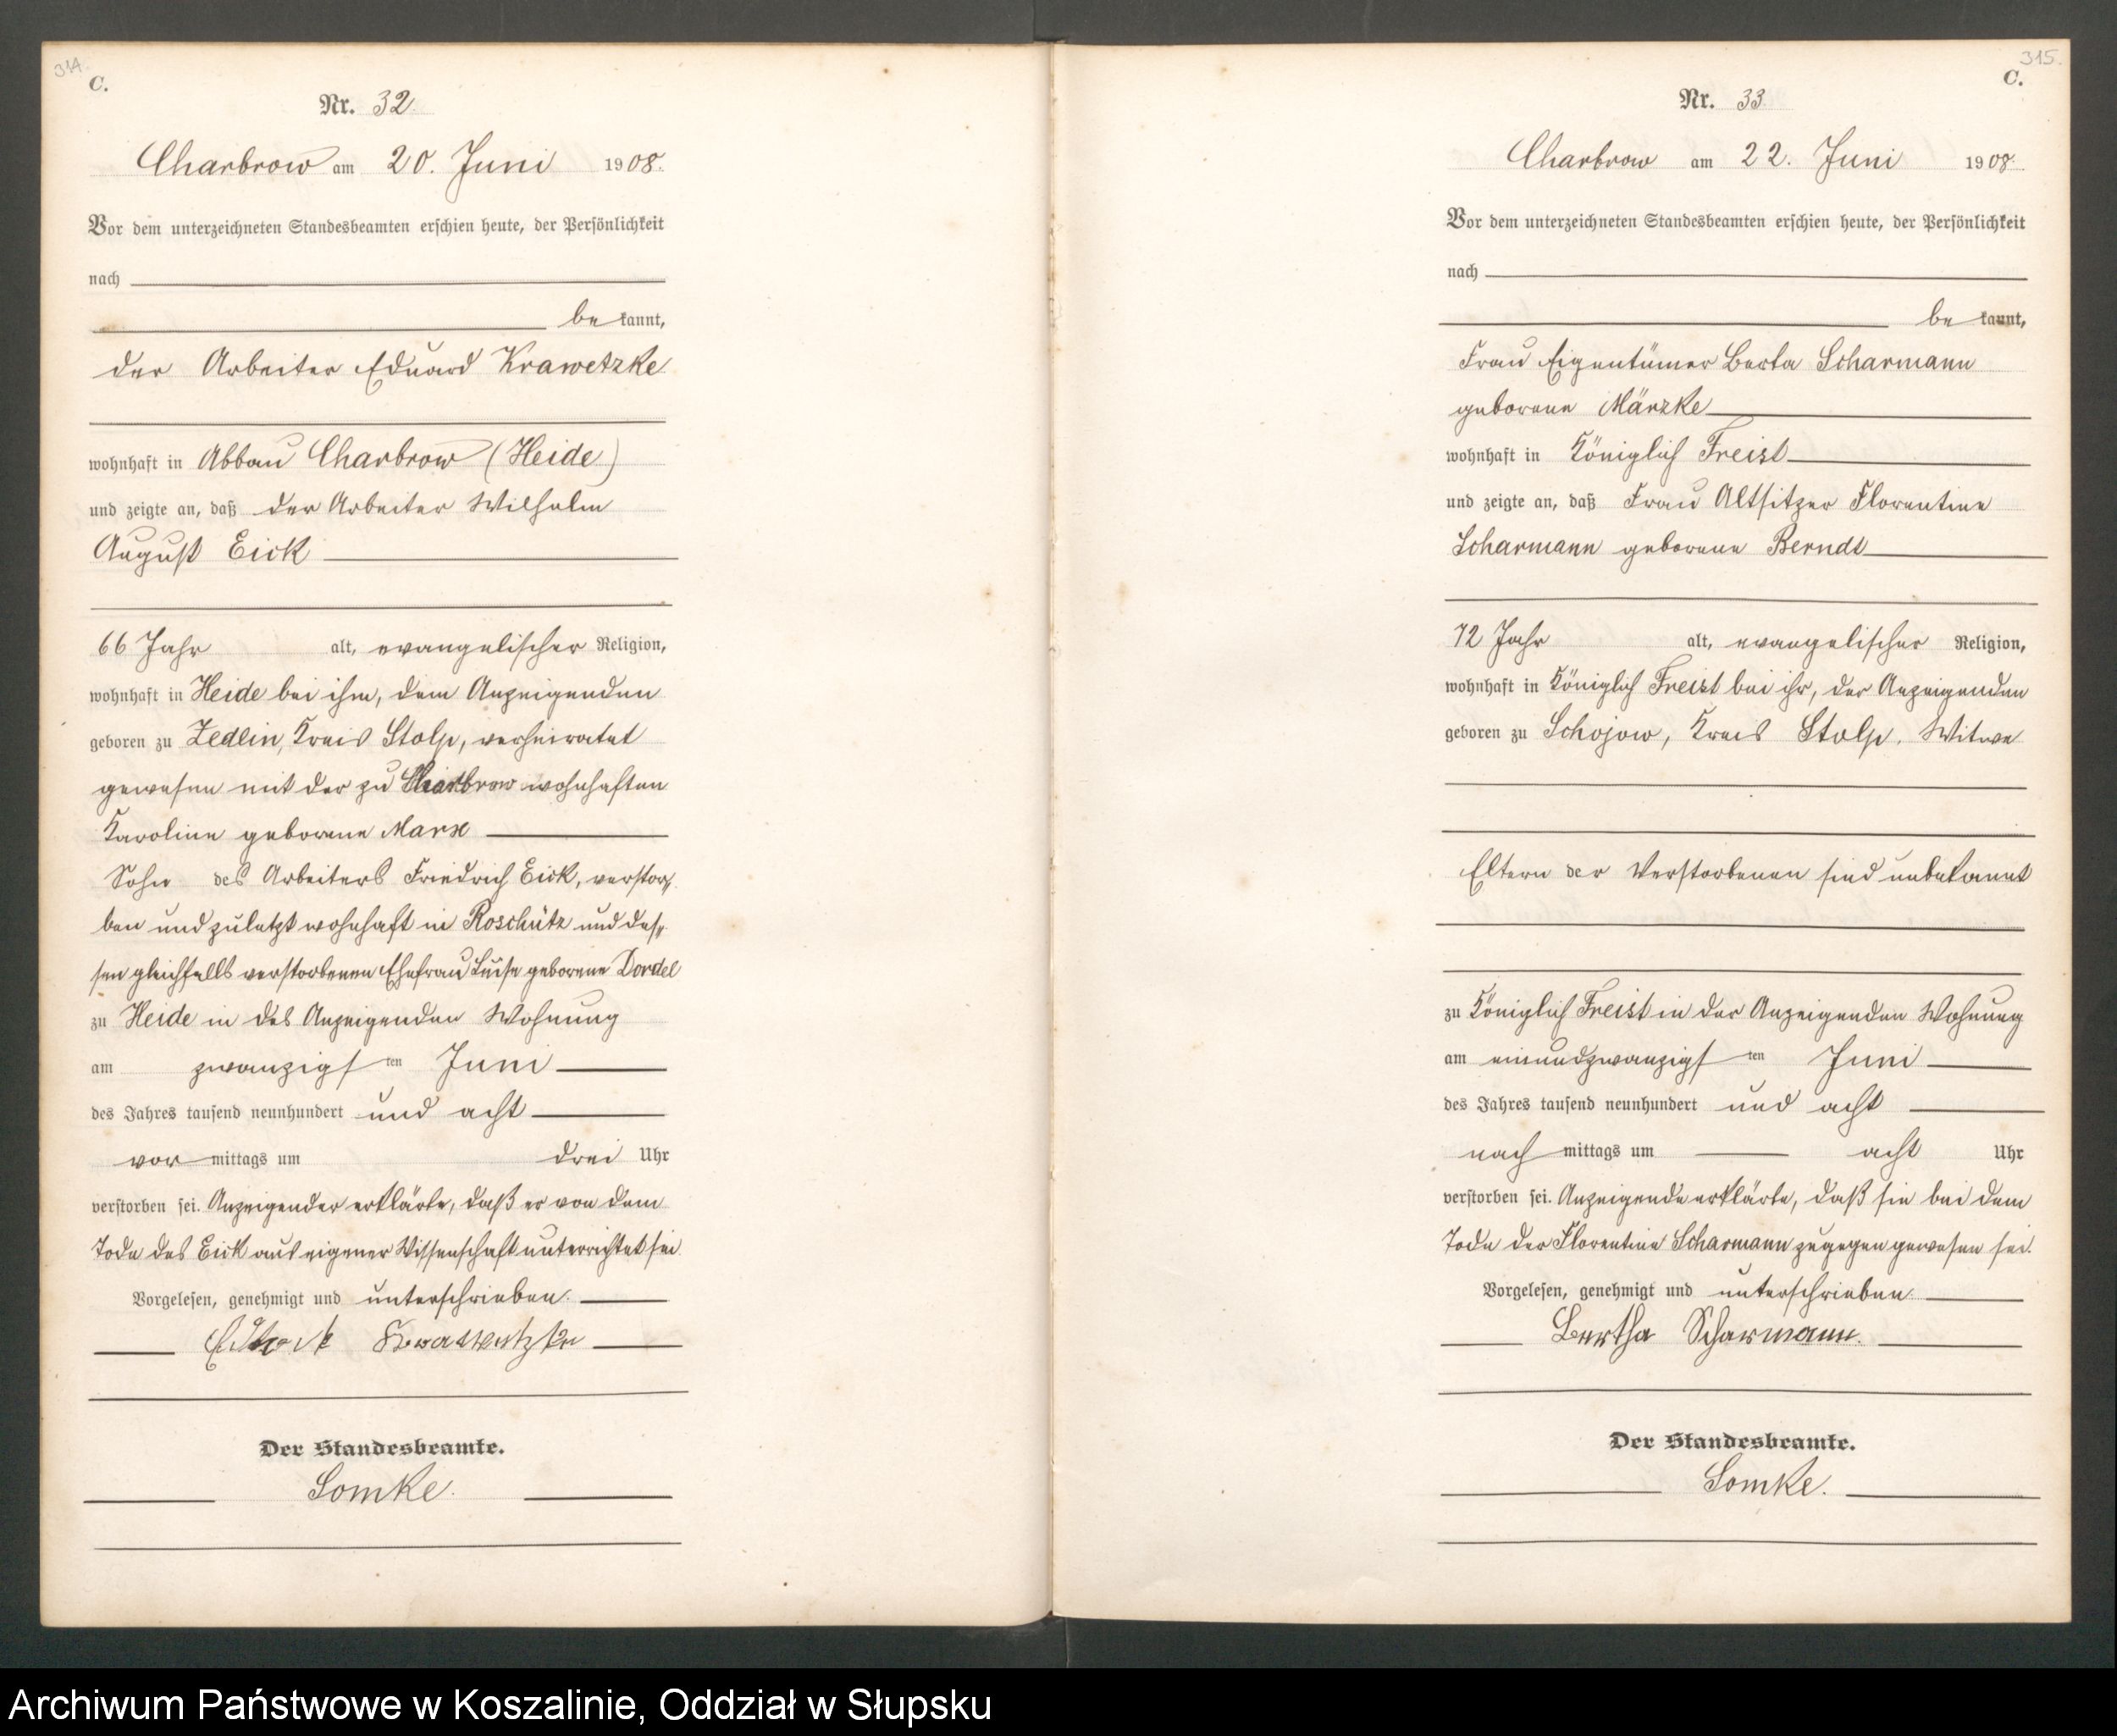 314.
C.
Nr. 32.
Charbrow am 20. Juni 1908.
Vor dem unterzeichneten Standesbeamten erschien heute, der Persönlichkeit
nach
be kannt,
der Arbeiter Eduard Krawetzke
wohnhaft in Abbau Charbrow (Heide)
und zeigte an, daß der Arbeiter Wilhelm
August Eick
66 Jahr alt, evangelischer Religion,
wohnhaft in Heide bei ihm, dem Anzeigenden
geboren zu Zedlin, Kreis Stolp, verheiratet
gewesen mit der zu Charbrow wohnhaften
Karoline geborene Marx
Sohn des Arbeiters Friedrich Eick, verstor-
ben und zuletzt wohnhaft in Roschütz und des-
sen gleichfalls verstorbenen Ehefrau Luise geborene Dordel
zu Heide in des Anzeigenden Wohnung
am zwanzigsten Juni
des Jahres tausend neunhundert und acht
vor mittags um drei Uhr
verstorben sei. Anzeigender erklärte, daß er von dem
Tode des Eick aus eigener Wissenschaft unterrichtet sei.
Vorgelesen, genehmigt und unterschrieben.
Krawetzke
Der Standesbeamte.
Somke.
315.
C.
Nr. 33.
Charbrow am 22. Juni 1908.
Vor dem unterzeichneten Standesbeamten erschien heute, der Persönlichkeit
nach
be kannt,
Frau Eigentümer Berta Scharmann
geborene Märzke
wohnhaft in Königlich Freist
und zeigte an, daß Frau Altsitzer Florentine
Scharmann geborene Berndt
72 Jahr alt, evangelischer Religion,
wohnhaft in Königlich Freist bei ihr, der Anzeigenden
geboren zu Schojow, Kreis Stolp. Witwe
Eltern der Verstorbenen sind unbekannt
zu Königlich Freist in der Anzeigenden Wohnung
am einundzwanzigsten Juni
des Jahres tausend neunhundert und acht
nach mittags um acht Uhr
verstorben sei. Anzeigende erklärte, daß sie bei dem
Tode der Florentine Scharmann zugegen gewesen sei.
Vorgelesen, genehmigt und unterschrieben.
Bertha Scharmann.
Der Standesbeamte.
Somke.
Archiwum Państwowe w Koszalinie, Oddział w Słupsku